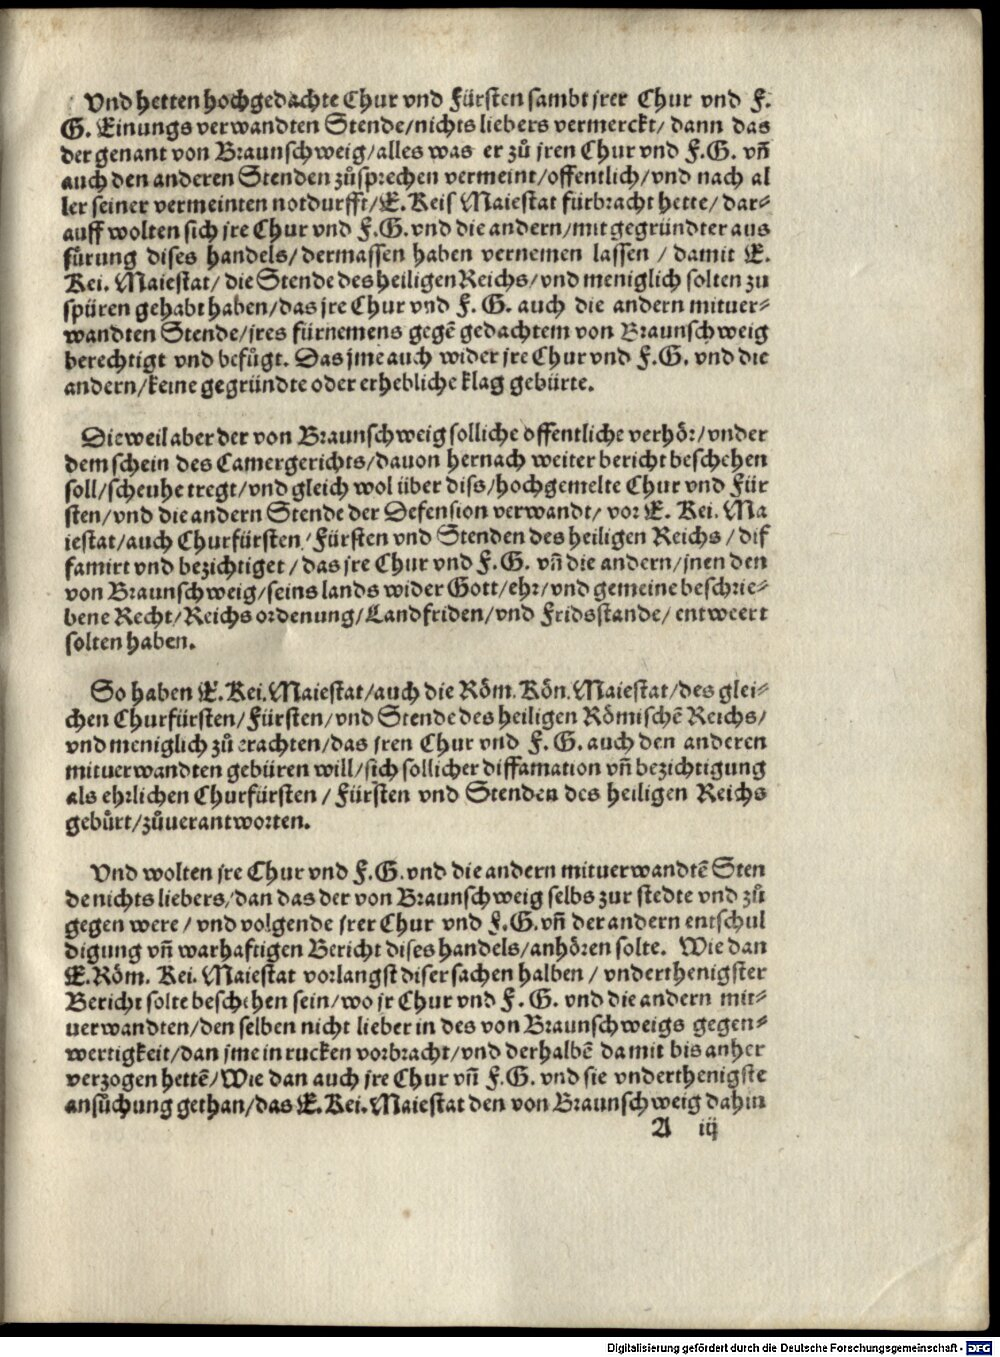 Vnd hetten hochgedachte Chur vnd Fürsten sambt jrer Chur vnd F.
G. Einungs verwandten Stende/nichts liebers vermerckt/ dann das
der genant von Braunschweig/alles was er zů jren Chur vnd F.G. vñ
auch den anderen Stenden zůsprechen vermeint/offentlich/vnd nach al
ler seiner vermeinten notdurfft/E. Keis Maiestat fürbracht hette/ dar⸗
auff wolten sich jre Chur vnd F.G. vnd die andern/mit gegründter aus
fůrung dises handels/dermassen haben vernemen lassen / damit E.
Kei. Maiestat/ die Stende des heiligen Reichs/vnd meniglich solten zu
spüren gehabt haben/das jre Chur vnd F. G. auch die andern mituer⸗
wandten Stende/jres fürnemens gegẽ gedachtem von Braunschweig
berechtigt vnd befůgt. Das jme auch wider jre Chur vnd F.G. vnd die
andern/keine gegründte oder erhebliche klag gebürte.
Dieweil aber der von Braunschweig solliche offentliche verhör/vnder
dem schein des Camergerichts/dauon hernach weiter bericht beschehen
soll/scheuhe tregt/vnd gleich wol über diss/hochgemelte Chur vnd Für
sten/vnd die andern Stende der Defension verwandt/ vor E. Kei. Ma
iestat/auch Churfürsten/Fürsten vnd Stenden des heiligen Reichs / dif
famirt vnd bezichtiget/das jre Chur vnd F.G. vñ die andern/jnen den
von Braunschweig/seins lands wider Gott/ehr/vnd gemeine beschrie⸗
bene Recht/Reichs ordenung/Landfriden/vnd Fridsstande/entweert
solten haben.
So haben E. Kei. Maiestat/auch die Röm. Kön. Maiestat/des glei⸗
chen Churfürsten/Fürsten/vnd Stende des heiligen Römischẽ Reichs/
vnd meniglich zů erachten/das jren Chur vnd F. G. auch den anderen
mituerwandten gebüren will/sich sollicher diffamation vñ bezichtigung
als ehrlichen Churfürsten / Fürsten vnd Stenden des heiligen Reichs
gebürt/zůuerantworten.
Vnd wolten jre Chur vnd F.G. vnd die andern mituerwandtẽ Sten
de nichts liebers/dan das der von Braunschweig selbs zur stedte vnd zů
gegen were/ vnd volgende jrer Chur vnd F.G. vñ der andern entschul
digung vñ warhaftigen Bericht dises handels/anhören solte. Wie dan
E.Röm. Kei. Maiestat vorlangst diser sachen halben / vnderthenigster
Bericht solte beschehen sein/wo jr Chur vnd F. G. vnd die andern mit⸗
uerwandten/den selben nicht lieber in des von Braunschweigs gegen⸗
wertigkeit/dan jme in rucken vorbracht/vnd derhalbẽ damit bis anher
verzogen hettẽ/Wie dan auch jre Chur vñ F.G. vnd sie vnderthenigste
ansůchung gethan/das E. Kei. Maiestat den von Braunschweig dahin
A iij
Digitalisierung gefördert durch die Deutsche Forschungsgemeinschaft - DFG